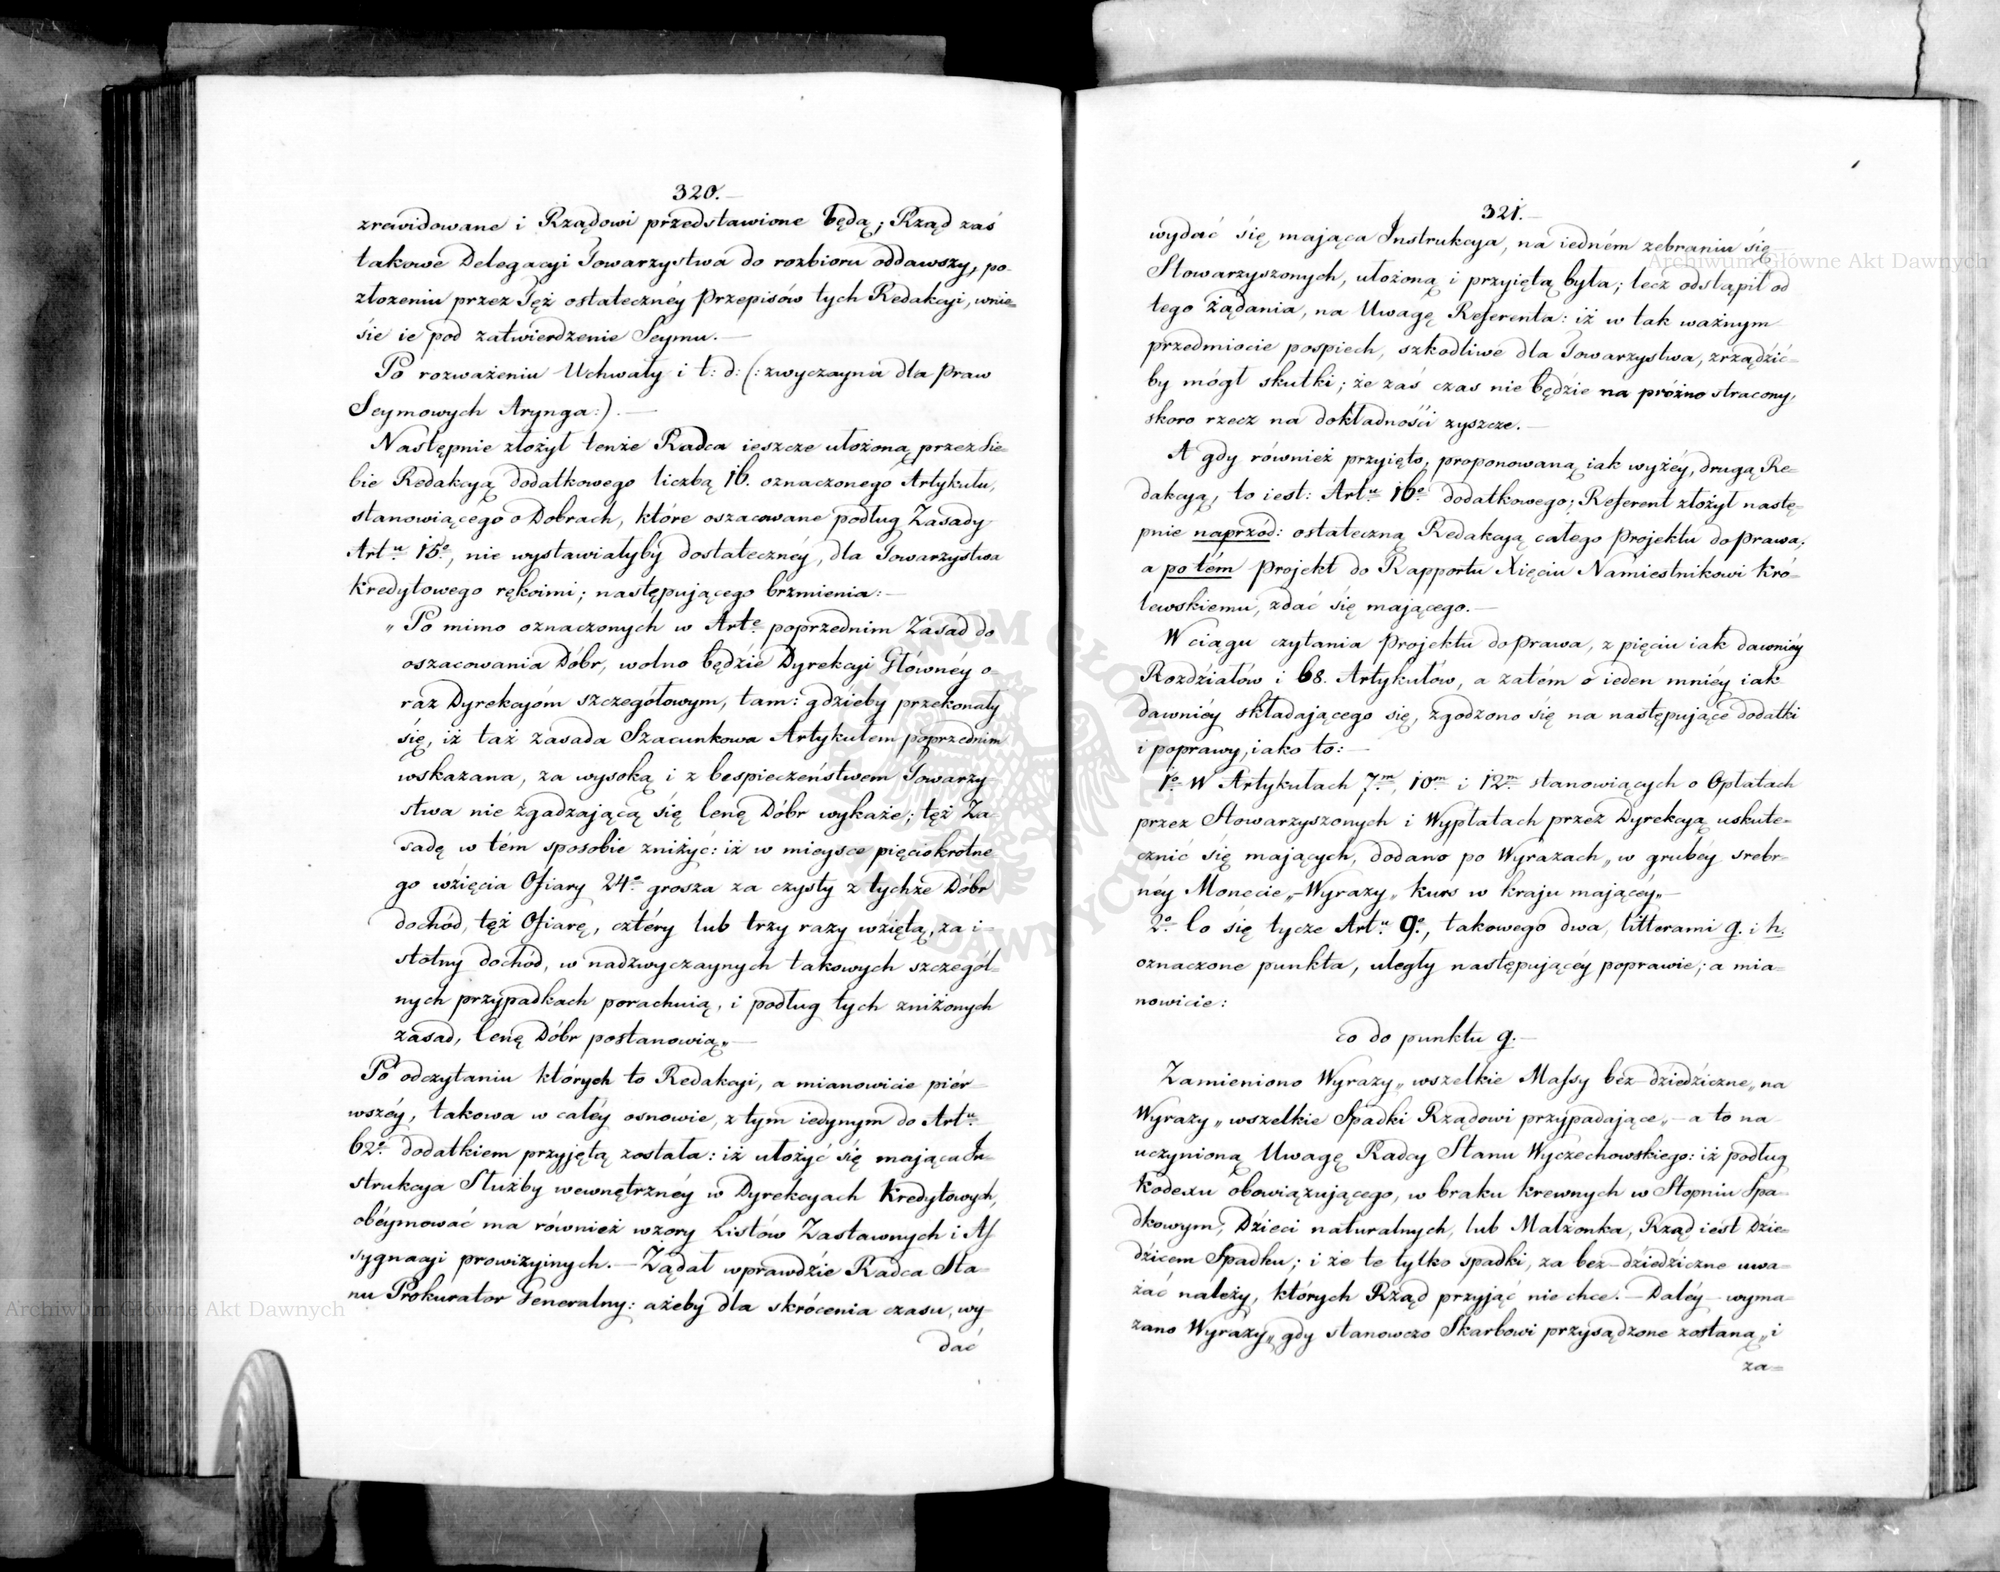 320.
zrewidowane i Rządowi przedstawione będą; Rząd zaś
takowe Delegacyi Towarzystwa do rozbioru oddawszy, po
złożeniu przez Tęż ostatecznéy Przepisów tych Redakcyi, wnie=
sie ie pod zatwierdzenie Seymu.—
Po rozważeniu Uchwały i t: d: (: zwyczayna dla Praw
Seymowych Arynga:).—
Następnie złożył tenże Radca ieszcze ułożoną przez Sie=
bie Redakcyą dodatkowego liczbą 16. oznaczonego Artykułu,
stanowiącego o Dobrach, które oszacowane podług Zasady
Artu 15o, nie wystawiałyby dostatecznéy, dla Towarzystwa
Kredytowego rękoimi; następującego brzmienia:—
„Po mimo oznaczonych w Arte poprzednim Zasad do
oszacowania Dóbr, wolno będzie Dyrekcyi Głównéy o=
raz Dyrekcyom szczegółowym, tam: gdzieby przekonały
się, iż taż zasada Szacunkowa Artykułem poprzednim
wskazana, za wysoką i z bespieczeństwem Towarzy=
stwa nie zgadzającą się Cenę Dóbr wykaże; też Za=
sadę w tém sposobie zniżyć: iż w mieysce pięciokrotne=
go wzięcia Ofiary 24o grosza za czysty z tychże Dóbr
dochód, też Ofiarę, cztéry lub trzy razy wziętą, za i=
stotny dochód, w nadzwyczaynych takowych szczegól=
nych przypadkach porachuią, i podług tych zniżonych
zasad, Cenę Dóbr postanowią„—
Po odczytaniu których to Redakcyi, a mianowicie piér=
wszéy, takowa w całéy osnowie, z tym iedynym do Artu
62o dodatkiem przyjętą została: iż ułożyć się mająca In=
strukcya Służby wewnętrznéy w Dyrekcyach Kredytowych,
obéymować ma również wzory Listów Zastawnych i As
sygnacyi prowizyinych.— Żądał wprawdzie Radca Sta=
nu Prokurator Generalny: ażeby dla skrócenia czasu, wy=
dać
321.—
wydać się mająca Instrukcya, na iedném zebraniu się
Stowarzyszonych, ułożoną i przyiętą była; lecz odstąpił od
tego żądania, na Uwagę Referenta: iż w tak ważnym
przedmiocie pospiech, szkodliwe dla Towarzystwa, zrządzić=
by mógł skutki; że zaś czas nie będzie na próżno stracony,
skoro rzecz na dokładności zyszcze.—
A gdy również przyięto, proponowaną iak wyżéy, drugą Re=
dakcyą, to iest: Artu 16o dodatkowego; Referent złożył nastę=
pnie naprzód: ostateczną Redakcyą całego Projektu do Prawa,
a potém Projekt do Rapportu Xięciu Namiestnikowi Kró=
lewskiemu, zdać się mającego.—
W ciągu czytania Projektu do Prawa, z pięciu iak dawniéy
Rozdziałów i 68. Artykułów, a zatém o ieden mniéy iak
dawniéy składającego się, zgodzono się na następujące dodatki
i poprawy, iako to:—
1o W Artykułach 7m, 10m i 12m stanowiących o Opłatach
przez Stowarzyszonych i Wypłatach przez Dyrekcyą uskute=
cznić się mających, dodano po Wyrazach „w grubéy srebr=
néy Monecie„— Wyrazy „kurs w kraju mającéy„—
2o Co się tycze Artu 9o, takowego dwa, litterami g. i h.
oznaczone punkta, uległy następującéy poprawie; a mia=
nowicie:
Co do punktu g.—
Zamieniono Wyrazy „wszelkie Massy bez-dziedziczne„ na
Wyrazy „wszelkie Spadki Rządowi przypadające„— a to na
uczynioną Uwagę Radcy Stanu Wyczechowskiego: iż podług
Kodexu obowiązującego, w braku krewnych w Stopniu Spa=
dkowym, Dzieci naturalnych, lub Małżonka, Rząd iest Dzie=
dzicem Spadku; i że te tylko spadki, za bez-dziedziczne uwa=
żać należy, których Rząd przyjąć nie chce.— Daléy wyma=
zano Wyrazy „gdy stanowczo Skarbowi przysądzone zostaną„ i
za=
Archiwum Główne Akt Dawnych
Archiwum Główne Akt Dawnych
ARCHIWUM GŁÓWNE AKT DAWNYCH